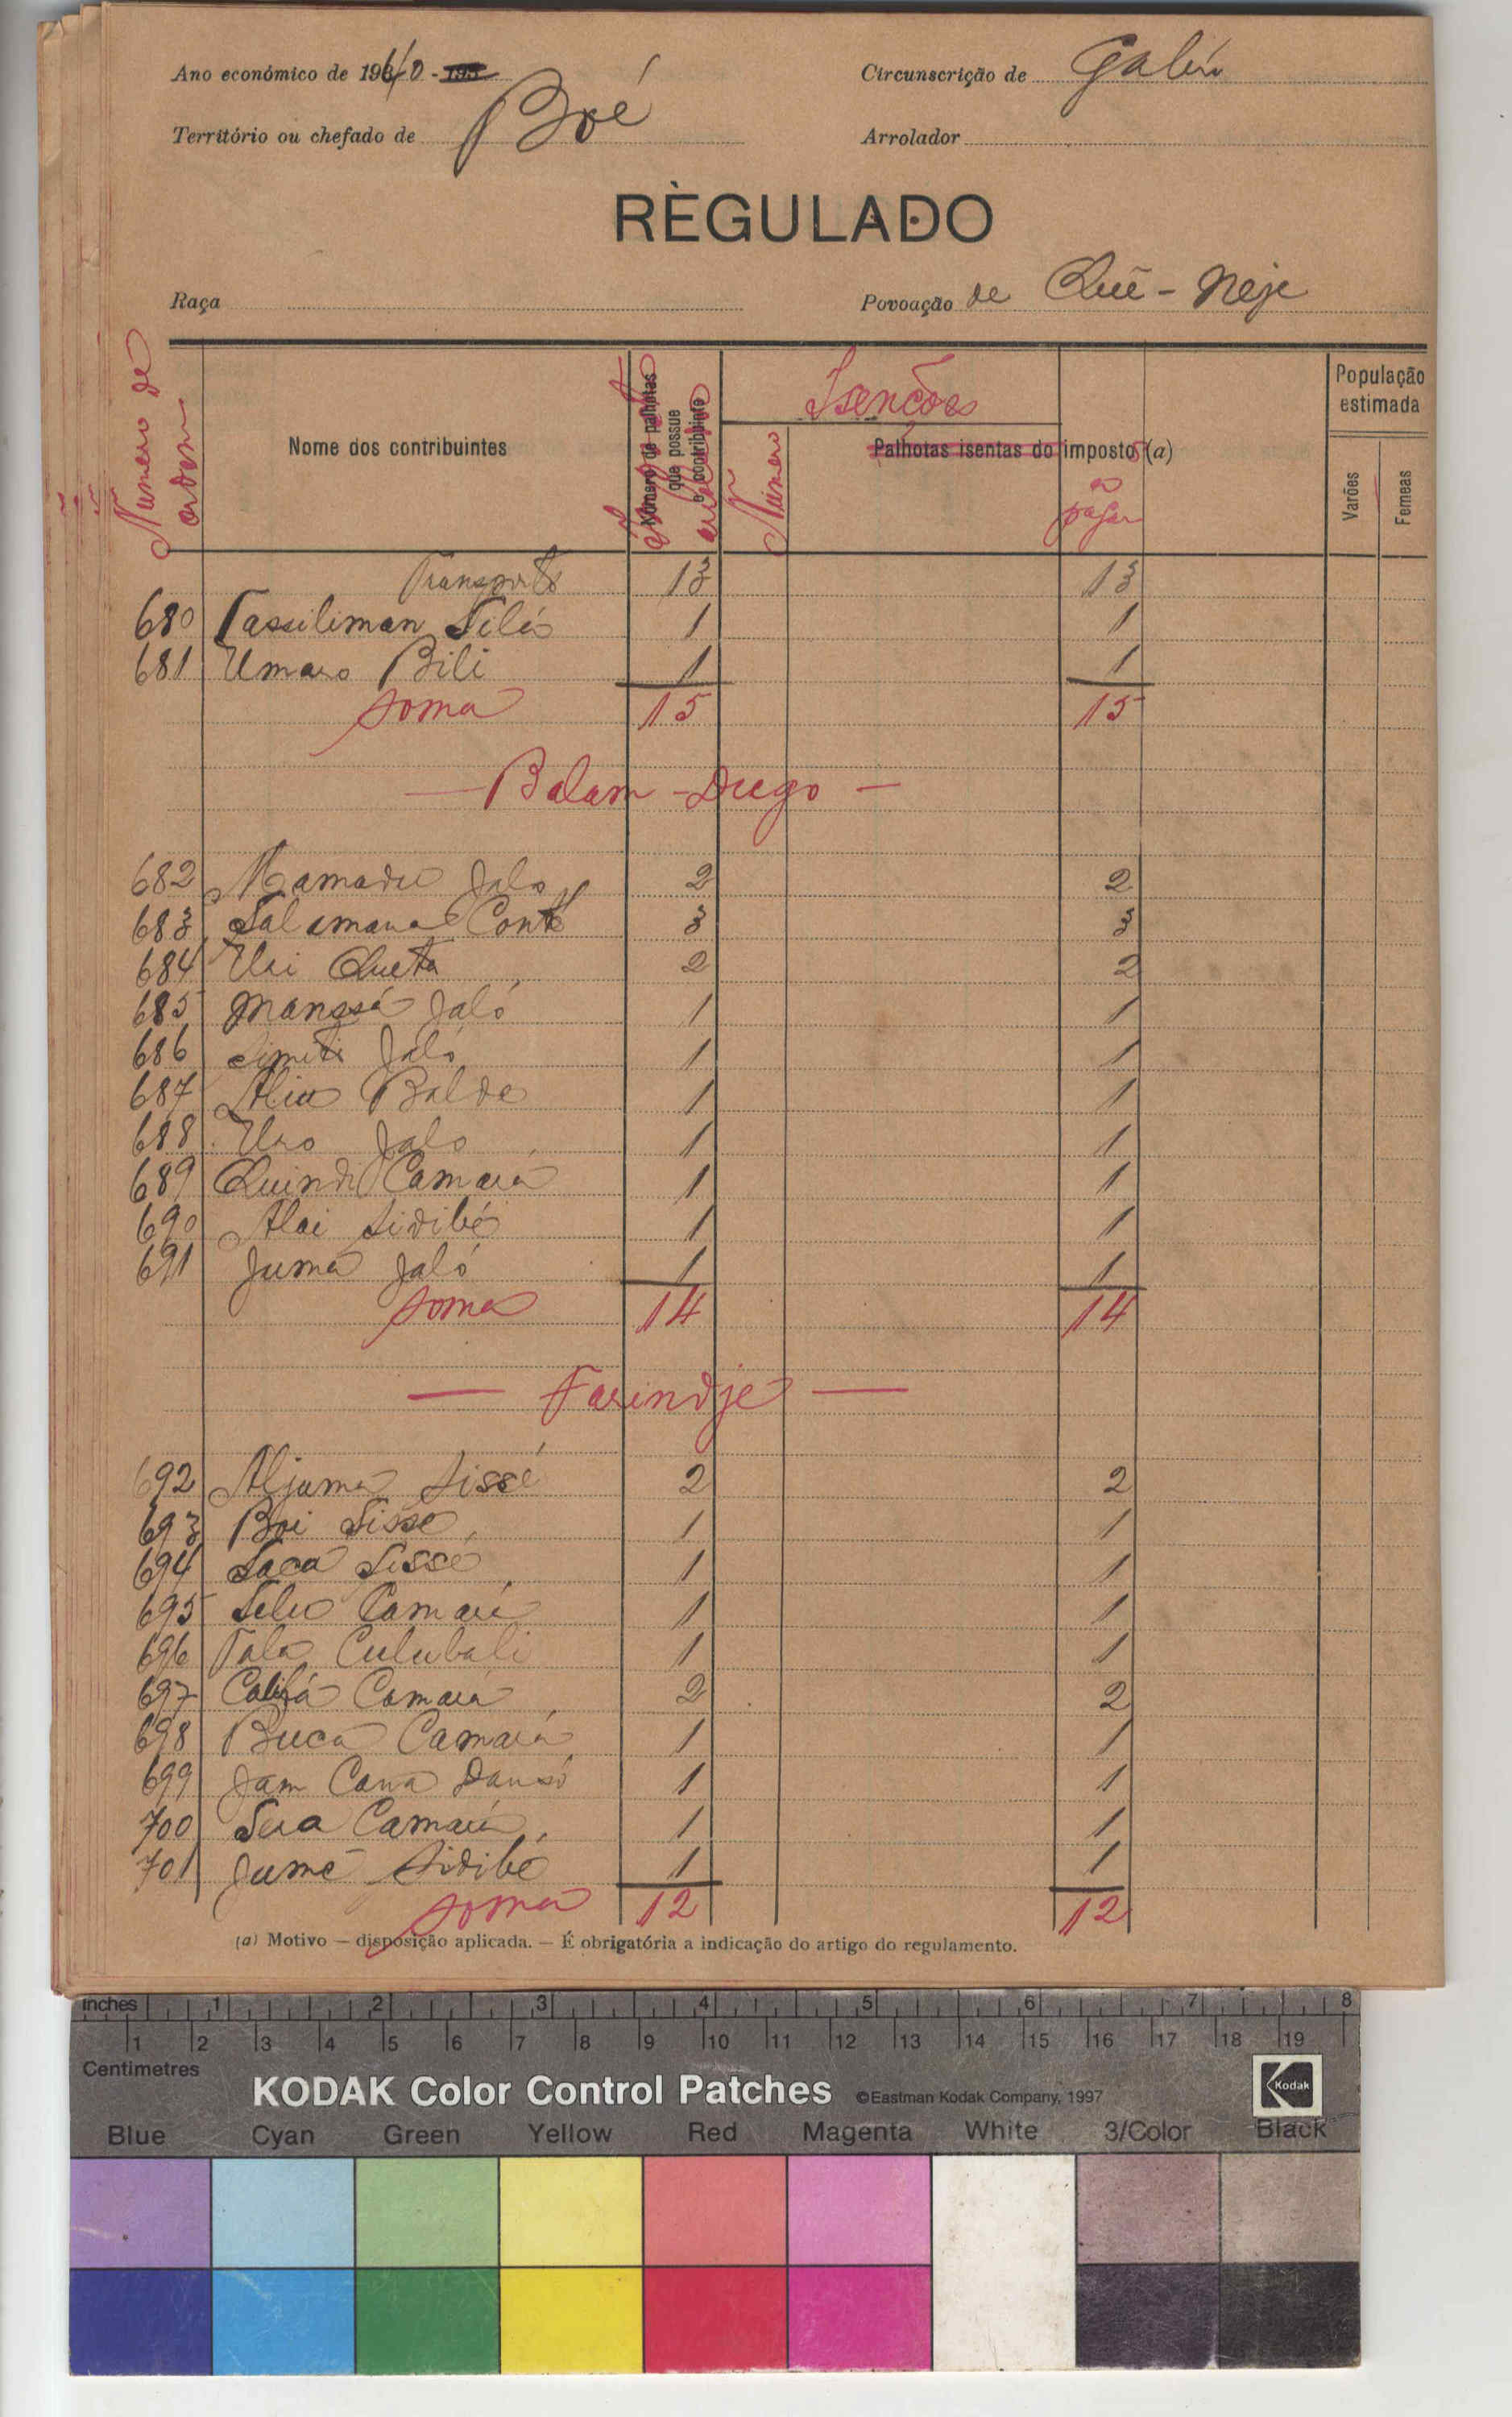 Ano económico de 1960 - 195
Circunscrição de Gabú
Território ou chefado de Boé
Arrolador
RÈGULADO
Raça
Povoação de Quē - Neje
Numero de ordem
Nome dos contribuintes
Número de palhotas que possue o contribuinte
Isenções
Número
Palhotas isentas do imposto (a)
a pagar
População estimada
Varões
Femeas
Transporte 13 13
680 Tassiliman Silá 1 1
681 Umaro Bili 1 1
soma 15 15
— Balam - Dugo —
682 Mamadu Jaló 2 2
683 Salamana Conté 3 3
684 Uri Queta 2 2
685 Manssá Jaló 1 1
686 Simiti Jaló 1 1
687 Aliu Balde 1 1
688 Uro Jalo 1 1
689 Quindi Camará 1 1
690 Alai Sidibé 1 1
691 Juma Jaló 1 1
soma 14 14
— Farindje —
692 Aljuma Sissé 2 2
693 Boi Sisse 1 1
694 Saca Sissé 1 1
695 Selu Camará 1 1
696 Tala Culubali 1 1
697 Camará 2 2
698 Buca Camará 1 1
699 Jam Cana Dansó 1 1
700 Sua Camará 1 1
701 Jumé Sidibé 1 1
soma 12 12
(a) Motivo — disposição aplicada. — É obrigatória a indicação do artigo do regulamento.
inches 1 2 3 4 5 6 7 8
1 2 3 4 5 6 7 8 9 10 11 12 13 14 15 16 17 18 19
Centimetres
KODAK Color Control Patches ©Eastman Kodak Company, 1997 Kodak
Blue Cyan Green Yellow Red Magenta White 3/Color Black